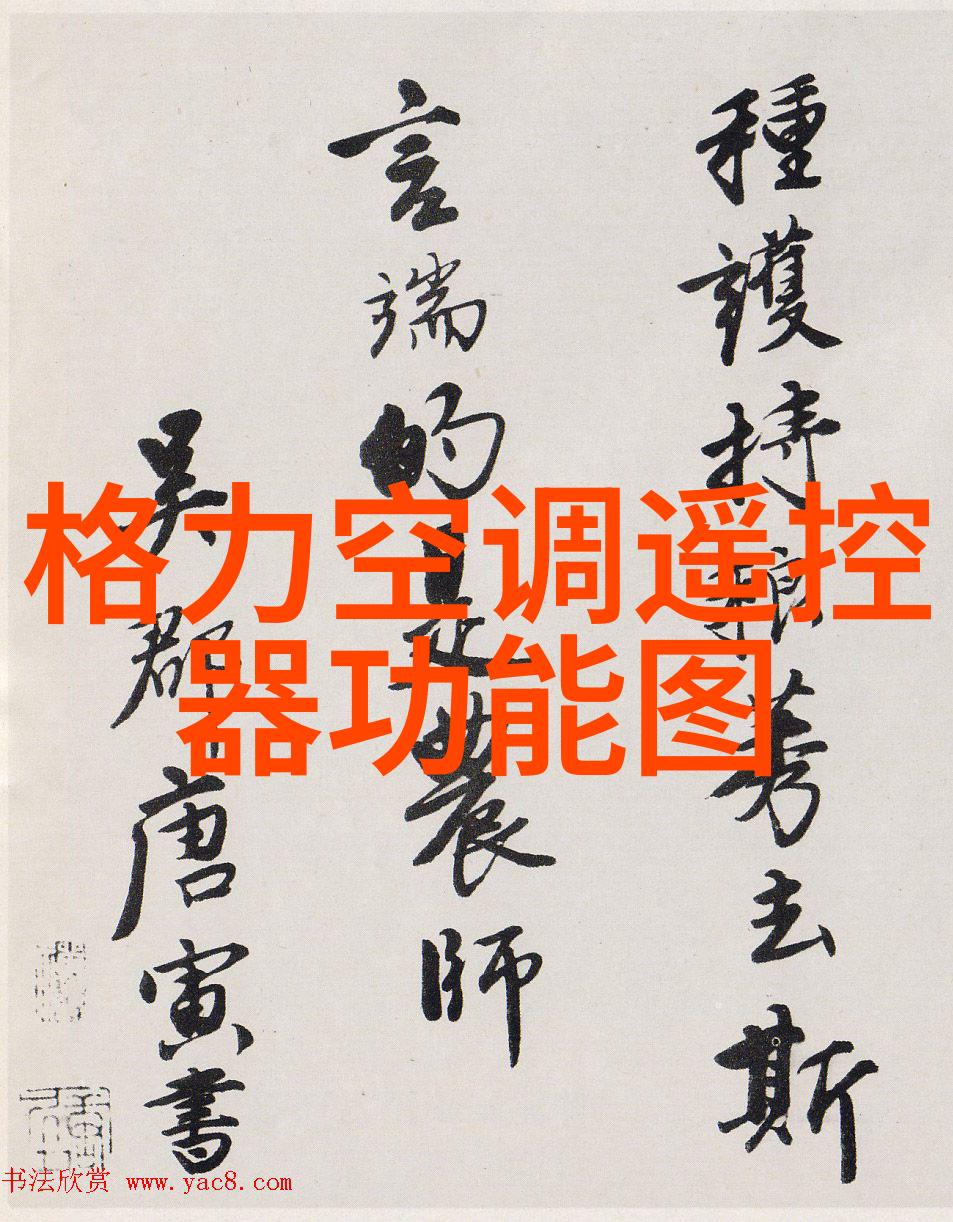 種護持稂莠去斯
言端的是農師
吳郡唐寅書
格力空调遥控
器功能图
书法欣赏 www.yac8.com